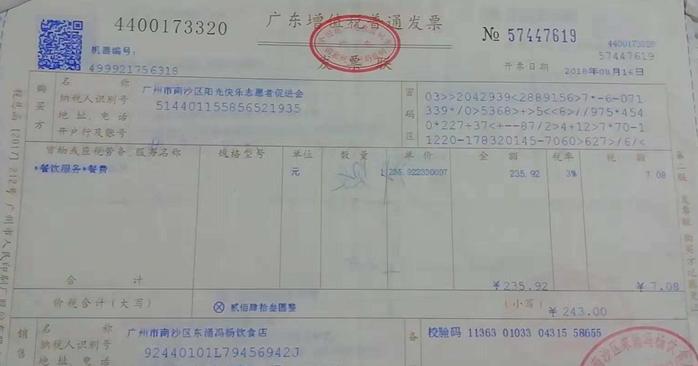 4400173320 广东增值税普通发票 № 57447619 4400173320
57447619
机器编号:
499921756318
发票联 开票日期 2018年08月16日
购买方
名 称 广州市南沙区阳光快乐志愿者促进会
纳税人识别号 514401155856521935
地址、电话
开户行及账号
密码区
03>>2042939<2889156>7*-6-071
339*/0>5368>+>5<<6>//975*454
0*227+37<+--87/2>4+12>7*70-1
1220-178320145-7060>627>/6/<
货物或应税劳务、服务名称 规格型号 单位 数量 单价 金额 税率 税额
*餐饮服务*餐费 元 1 235.92 3% 7.08
合计 ¥235.92 ¥7.08
价税合计(大写) ⊗ 贰佰肆拾叁圆整 (小写) ¥243.00
销售
名 称 广州市南沙区东涌冯杨饮食店
纳税人识别号 92440101L79456942J
地址、电话
备
校验码 11363 01033 04315 58655